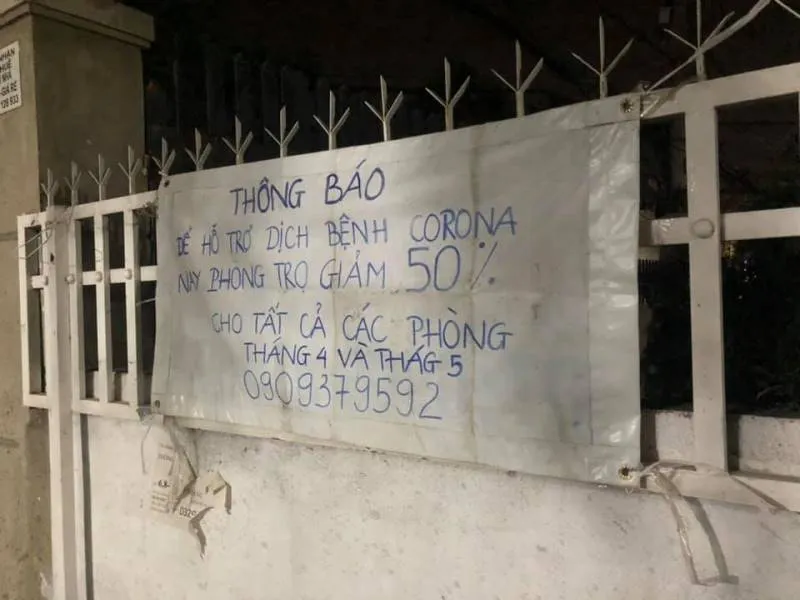 THÔNG BÁO
ĐỂ HỖ TRỢ DỊCH BỆNH CORONA
NAY PHONG TRỌ GIẢM 50%
CHO TẤT CẢ CÁC PHÒNG
THÁNG 4 VÀ THÁG 5
0909379592
NHẬN
NHÀ
GIÁ RẺ